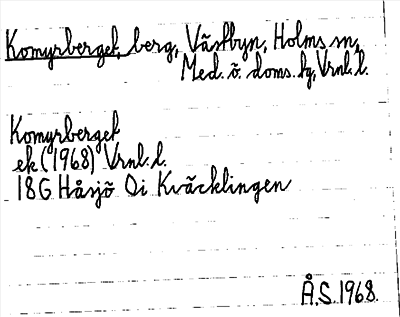 Komyrberget, berg, Västbyn, Holms sn,
Med. ö. doms. hg, Vrnl. l.
Komyrberget
ek (1968) Vrnl. l.
18G Håsjö Oi Kväcklingen
Å.S. 1968.